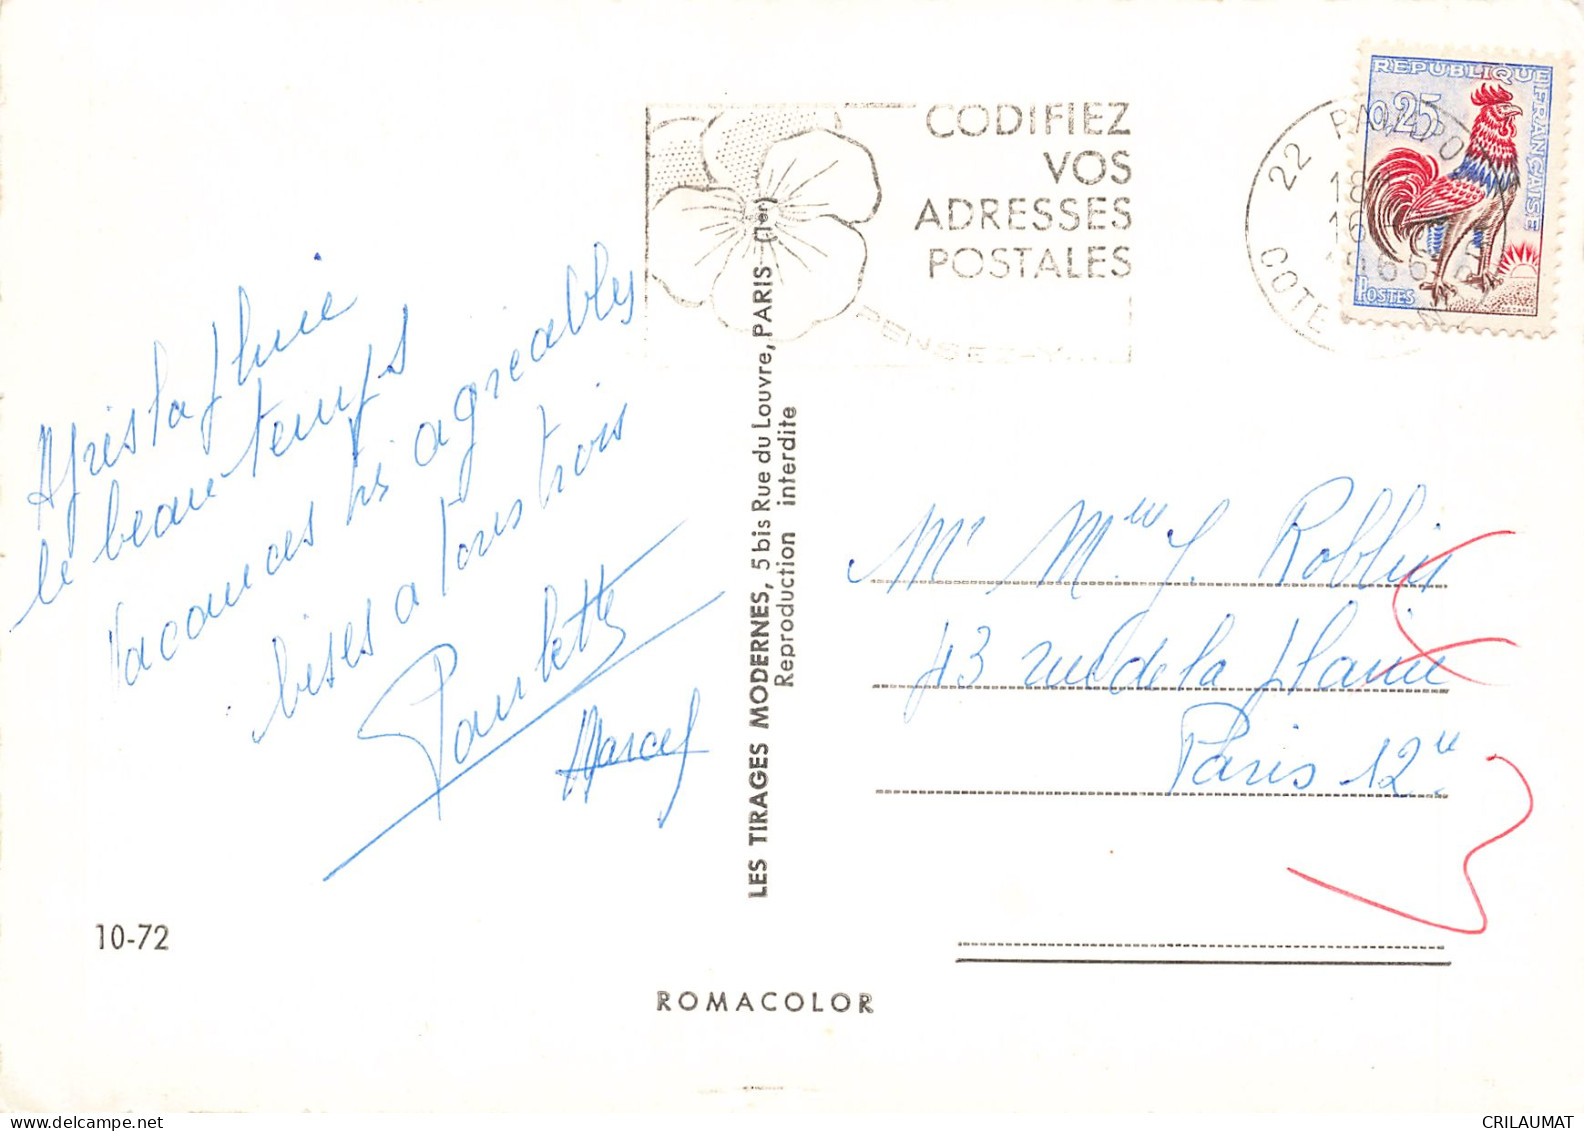 CODIFIEZ
VOS
ADRESSES
POSTALES
PENSEZ-Y
REPUBLIQUE FRANÇAISE
0,25
POSTES
22 PAIMPOL
18
16
1966
COTE
Après la pluie
le beau temps
Vacances très agréables
bises a tous trois
Paulette
Marcel
LES TIRAGES MODERNES, 5 bis Rue du Louvre, PARIS (1er)
Reproduction interdite
Mr Mme J. Roblin
43 rue de la plaine
Paris 12e
10-72
ROMACOLOR
CRILAUMAT